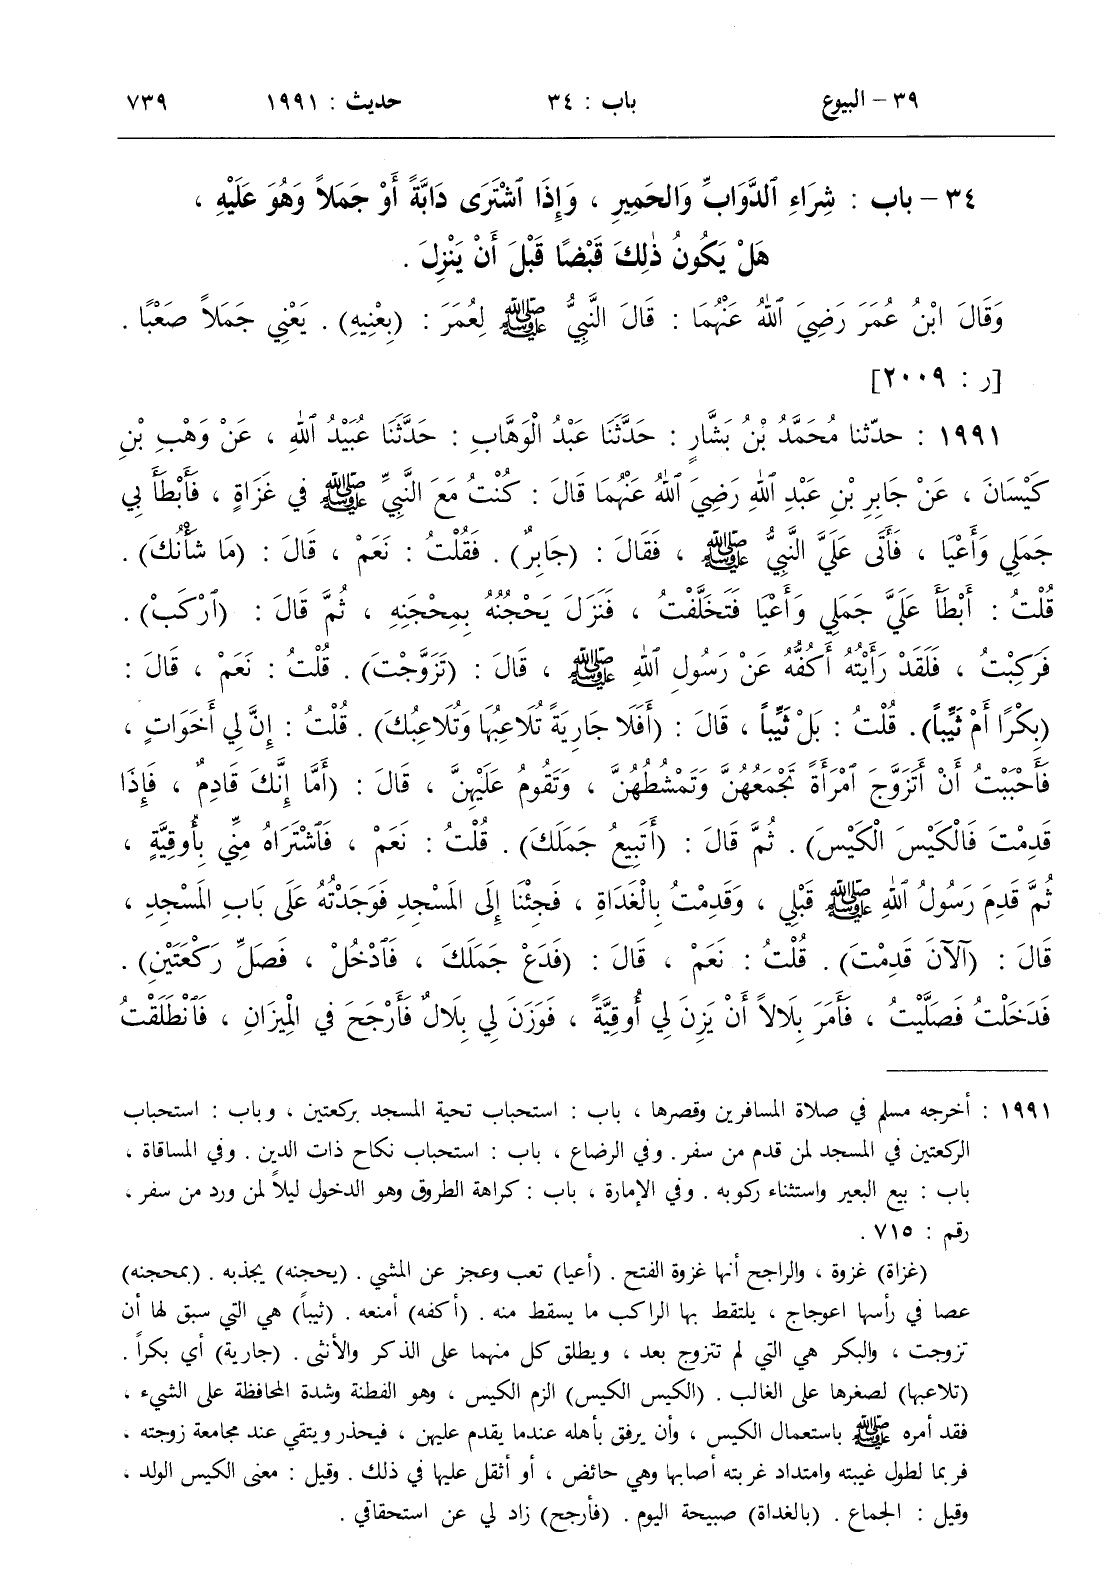 ٣٩ – البيوع باب : ٣٤ حديث : ١٩٩١ ٧٣٩
٣٤ – باب : شِرَاءِ ٱلدَّوَابِّ وَالحَمِيرِ ، وَإِذَا ٱشْتَرَى دَابَّةً أَوْ جَمَلاً وَهُوَ عَلَيْهِ ،
هَلْ يَكُونُ ذٰلِكَ قَبْضًا قَبْلَ أَنْ يَنْزِلَ .
وَقَالَ ابْنُ عُمَرَ رَضِيَ ٱللهُ عَنْهُمَا : قَالَ النَّبِيُّ ﷺ لِعُمَرَ : (بِعْنِيهِ) . يَعْنِي جَمَلاً صَعْبًا .
[ر : ٢٠٠٩]
١٩٩١ : حدّثنا مُحَمَّدُ بْنُ بَشَّارٍ : حَدَّثَنَا عَبْدُ الْوَهَّابِ : حَدَّثَنَا عُبَيْدُ ٱللهِ ، عَنْ وَهْبِ بْنِ
كَيْسَانَ ، عَنْ جَابِرِ بْنِ عَبْدِ ٱللهِ رَضِيَ ٱللهُ عَنْهُمَا قَالَ : كُنْتُ مَعَ النَّبِيِّ ﷺ في غَزَاةٍ ، فَأَبْطَأَ بِي
جَمَلِي وَأَعْيَا ، فَأَتَى عَلَيَّ النَّبِيُّ ﷺ ، فَقَالَ : (جَابِرٌ) . فَقُلْتُ : نَعَمْ ، قَالَ : (مَا شَأْنُكَ) .
قُلْتُ : أَبْطَأَ عَلَيَّ جَمَلِي وَأَعْيَا فَتَخَلَّفْتُ ، فَنَزَلَ يَحْجُنُهُ بِمِحْجَنِهِ ، ثُمَّ قَالَ : (ٱرْكَبْ) .
فَرَكِبْتُ ، فَلَقَدْ رَأَيْتُهُ أَكُفُّهُ عَنْ رَسُولِ ٱللهِ ﷺ ، قَالَ : (تَزَوَّجْتَ) . قُلْتُ : نَعَمْ ، قَالَ :
(بِكْرًا أَمْ ثَيِّباً) . قُلْتُ : بَلْ ثَيِّباً ، قَالَ : (أَفَلَا جَارِيَةً تُلَاعِبُهَا وَتُلَاعِبُكَ) . قُلْتُ : إِنَّ لِي أَخَوَاتٍ ،
فَأَحْبَبْتُ أَنْ أَتَزَوَّجَ ٱمْرَأَةً تَجْمَعُهُنَّ وَتَمْشُطُهُنَّ ، وَتَقُومُ عَلَيْهِنَّ ، قَالَ : (أَمَّا إِنَّكَ قَادِمٌ ، فَإِذَا
قَدِمْتَ فَالْكَيْسَ الْكَيْسَ) . ثُمَّ قَالَ : (أَتَبِيعُ جَمَلَكَ) . قُلْتُ : نَعَمْ ، فَٱشْتَرَاهُ مِنِّي بِأُوقِيَّةٍ ،
ثُمَّ قَدِمَ رَسُولُ ٱللهِ ﷺ قَبْلِي ، وَقَدِمْتُ بِالْغَدَاةِ ، فَجِئْنَا إِلَى المَسْجِدِ فَوَجَدْتُهُ عَلَى بَابِ المَسْجِدِ ،
قَالَ : (آلآنَ قَدِمْتَ) . قُلْتُ : نَعَمْ ، قَالَ : (فَدَعْ جَمَلَكَ ، فَٱدْخُلْ ، فَصَلِّ رَكْعَتَيْنِ) .
فَدَخَلْتُ فَصَلَّيْتُ ، فَأَمَرَ بِلَالاً أَنْ يَزِنَ لِي أُوقِيَّةً ، فَوَزَنَ لِي بِلَالٌ فَأَرْجَحَ فِي الْمِيزَانِ ، فَٱنْطَلَقْتُ
١٩٩١ : أخرجه مسلم في صلاة المسافرين وقصرها ، باب : استحباب تحية المسجد بركعتين ، وباب : استحباب
الركعتين في المسجد لمن قدم من سفر . وفي الرضاع ، باب : استحباب نكاح ذات الدين . وفي المساقاة ،
باب : بيع البعير واستثناء ركوبه . وفي الإمارة ، باب : كراهة الطروق وهو الدخول ليلاً لمن ورد من سفر ،
رقم : ٧١٥ .
(غزاة) غزوة ، والراجح أنها غزوة الفتح . (أعيا) تعب وعجز عن المشي . (يحجنه) يجذبه . (بمحجنه)
عصا في رأسها اعوجاج ، يلتقط بها الراكب ما يسقط منه . (أكفه) أمنعه . (ثيباً) هي التي سبق لها أن
تزوجت ، والبكر هي التي لم تتزوج بعد ، ويطلق كل منهما على الذكر والأنثى . (جارية) أي بكراً .
(تلاعبها) لصغرها على الغالب . (الكيس الكيس) الزم الكيس ، وهو الفطنة وشدة المحافظة على الشيء ،
فقد أمره ﷺ باستعمال الكيس ، وأن يرفق بأهله عندما يقدم عليهن ، فيحذر ويتقي عند مجامعة زوجته ،
فربما لطول غيبته وامتداد غربته أصابها وهي حائض ، أو أثقل عليها في ذلك . وقيل : معنى الكيس الولد ،
وقيل : الجماع . (بالغداة) صبيحة اليوم . (فأرجح) زاد لي عن استحقاقي .